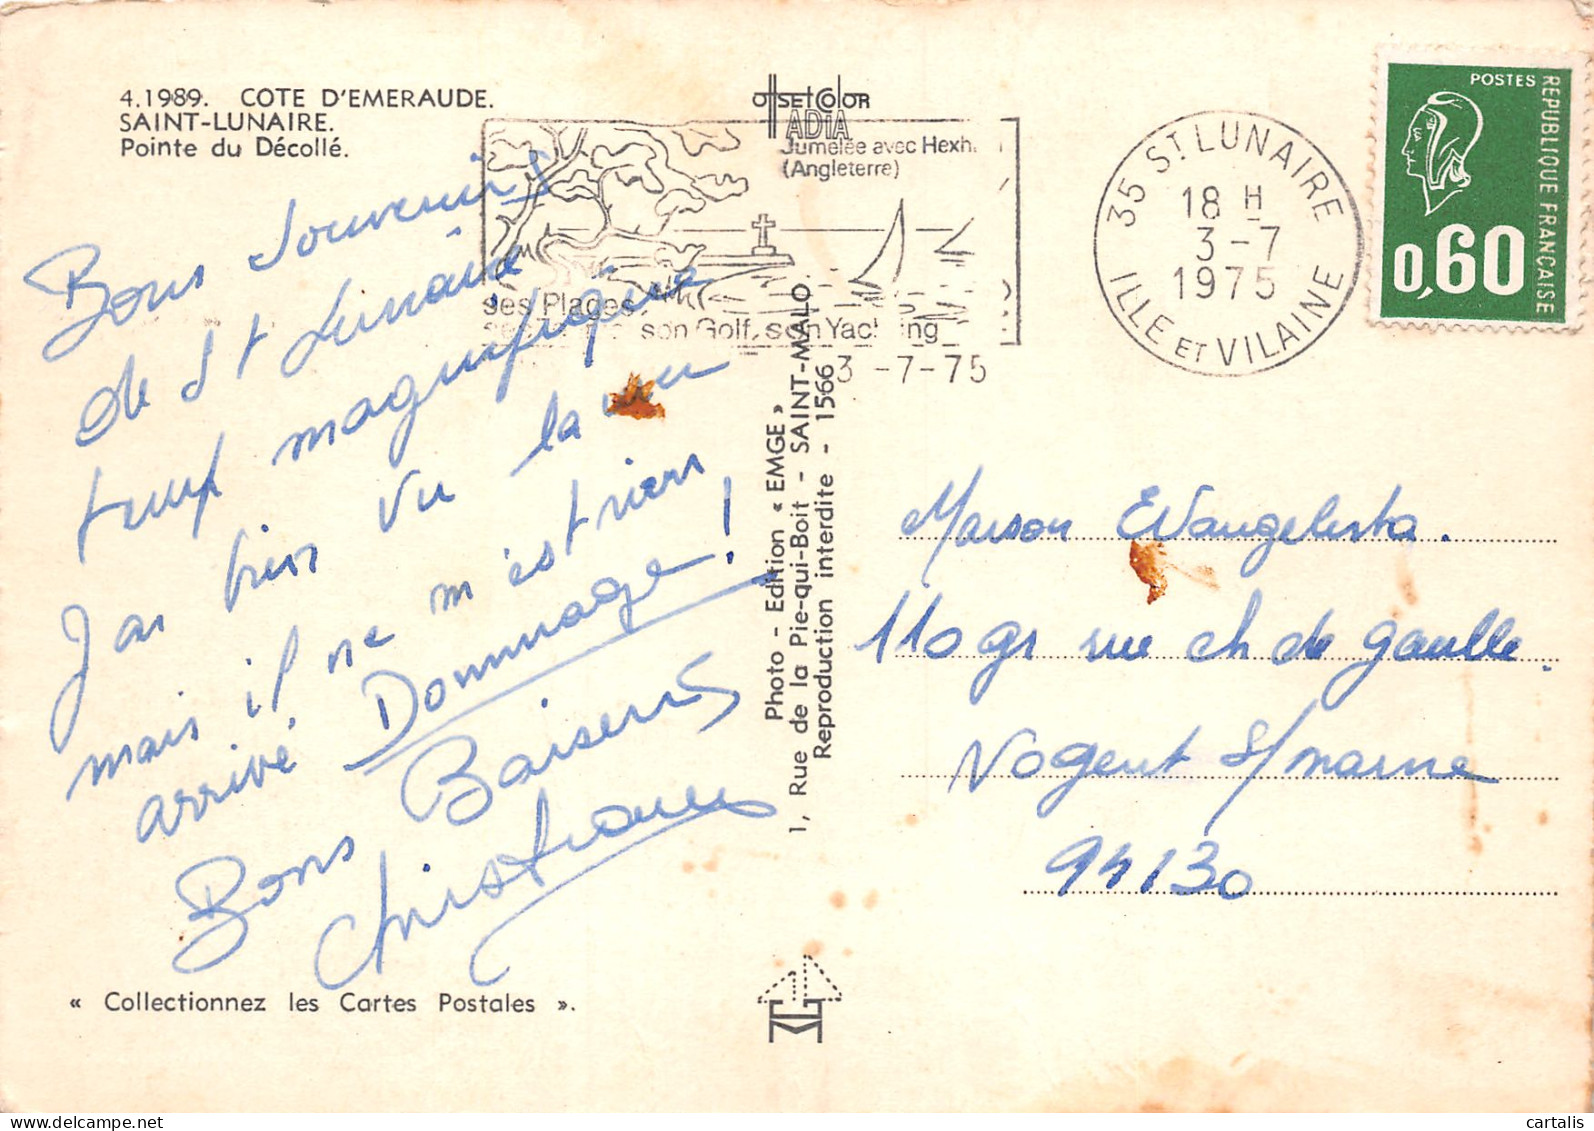 4.1989. COTE D'EMERAUDE.
SAINT-LUNAIRE.
Pointe du Décollé.
Bons Souvenirs
de St Lunaire
temps magnifique
J'ai bien vu la vu
mais il ne m'est rien
arrivé Dommage!
Bons Baisers
« Collectionnez les Cartes Postales ».
OffSEt COlOR
ADIA
Jumelée avec Hexh
(Angleterre)
ses Plages
son Golf, son Yachting
3-7-75
Photo - Edition « EMGE »
1, Rue de la Pie-qui-Boit - SAINT-MALO
Reproduction interdite - 1566
35 ST LUNAIRE
18 H
3-7
1975
ILLE ET VILAINE
POSTES
REPUBLIQUE FRANÇAISE
0,60
Maison Evangelista.
110 gr rue ch de gaulle.
Nogent s/marne
94130
cartalis